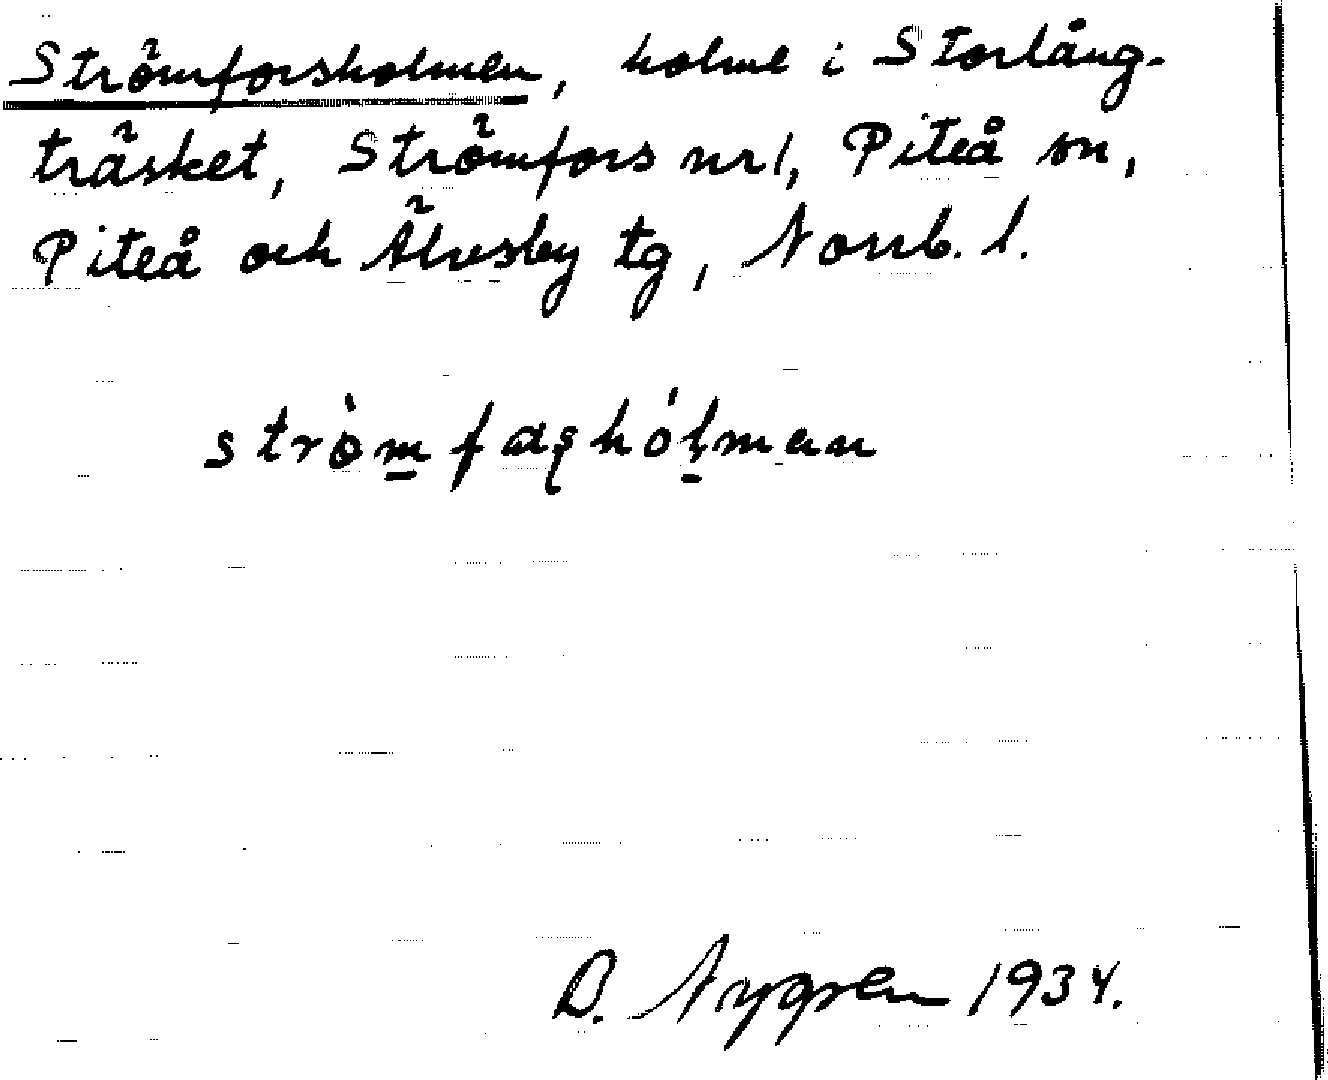 Strömforsholmen, holme i Storlång-
träsket, Strömfors nr 1, Piteå sn,
Piteå och Älvsby tg, Norrb. l.
strò̱mfaʂhól̥man
D. Nygren 1934.